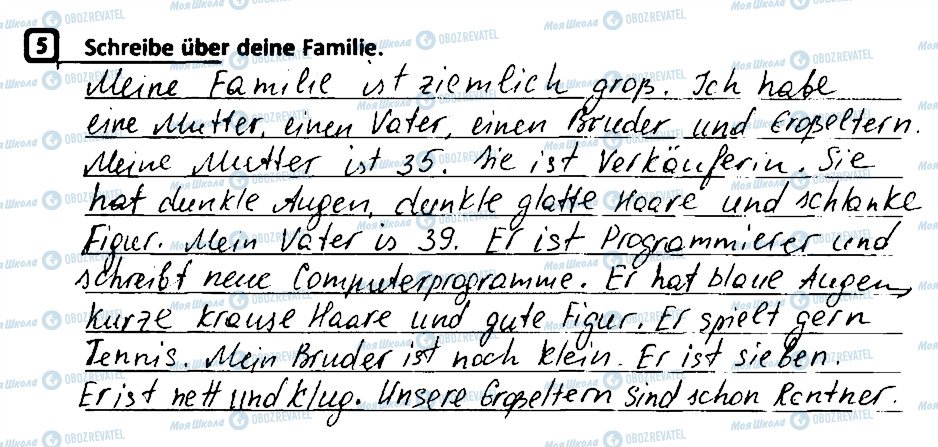 5 Schreibe über deine Familie.
Meine Familie ist ziemlich groß. Ich habe
eine Mutter, einen Vater, einen Bruder und Großeltern.
Meine Mutter ist 35. Sie ist Verkäuferin. Sie
hat dunkle Augen, dunkle glatte Haare und schlanke
Figur. Mein Vater is 39. Er ist Programmierer und
schreibt neue Computerprogramme. Er hat blaue Augen,
kurze krause Haare und gute Figur. Er spielt gern
Tennis. Mein Bruder ist noch klein. Er ist sieben.
Er ist nett und klug. Unsere Großeltern sind schon Rentner.